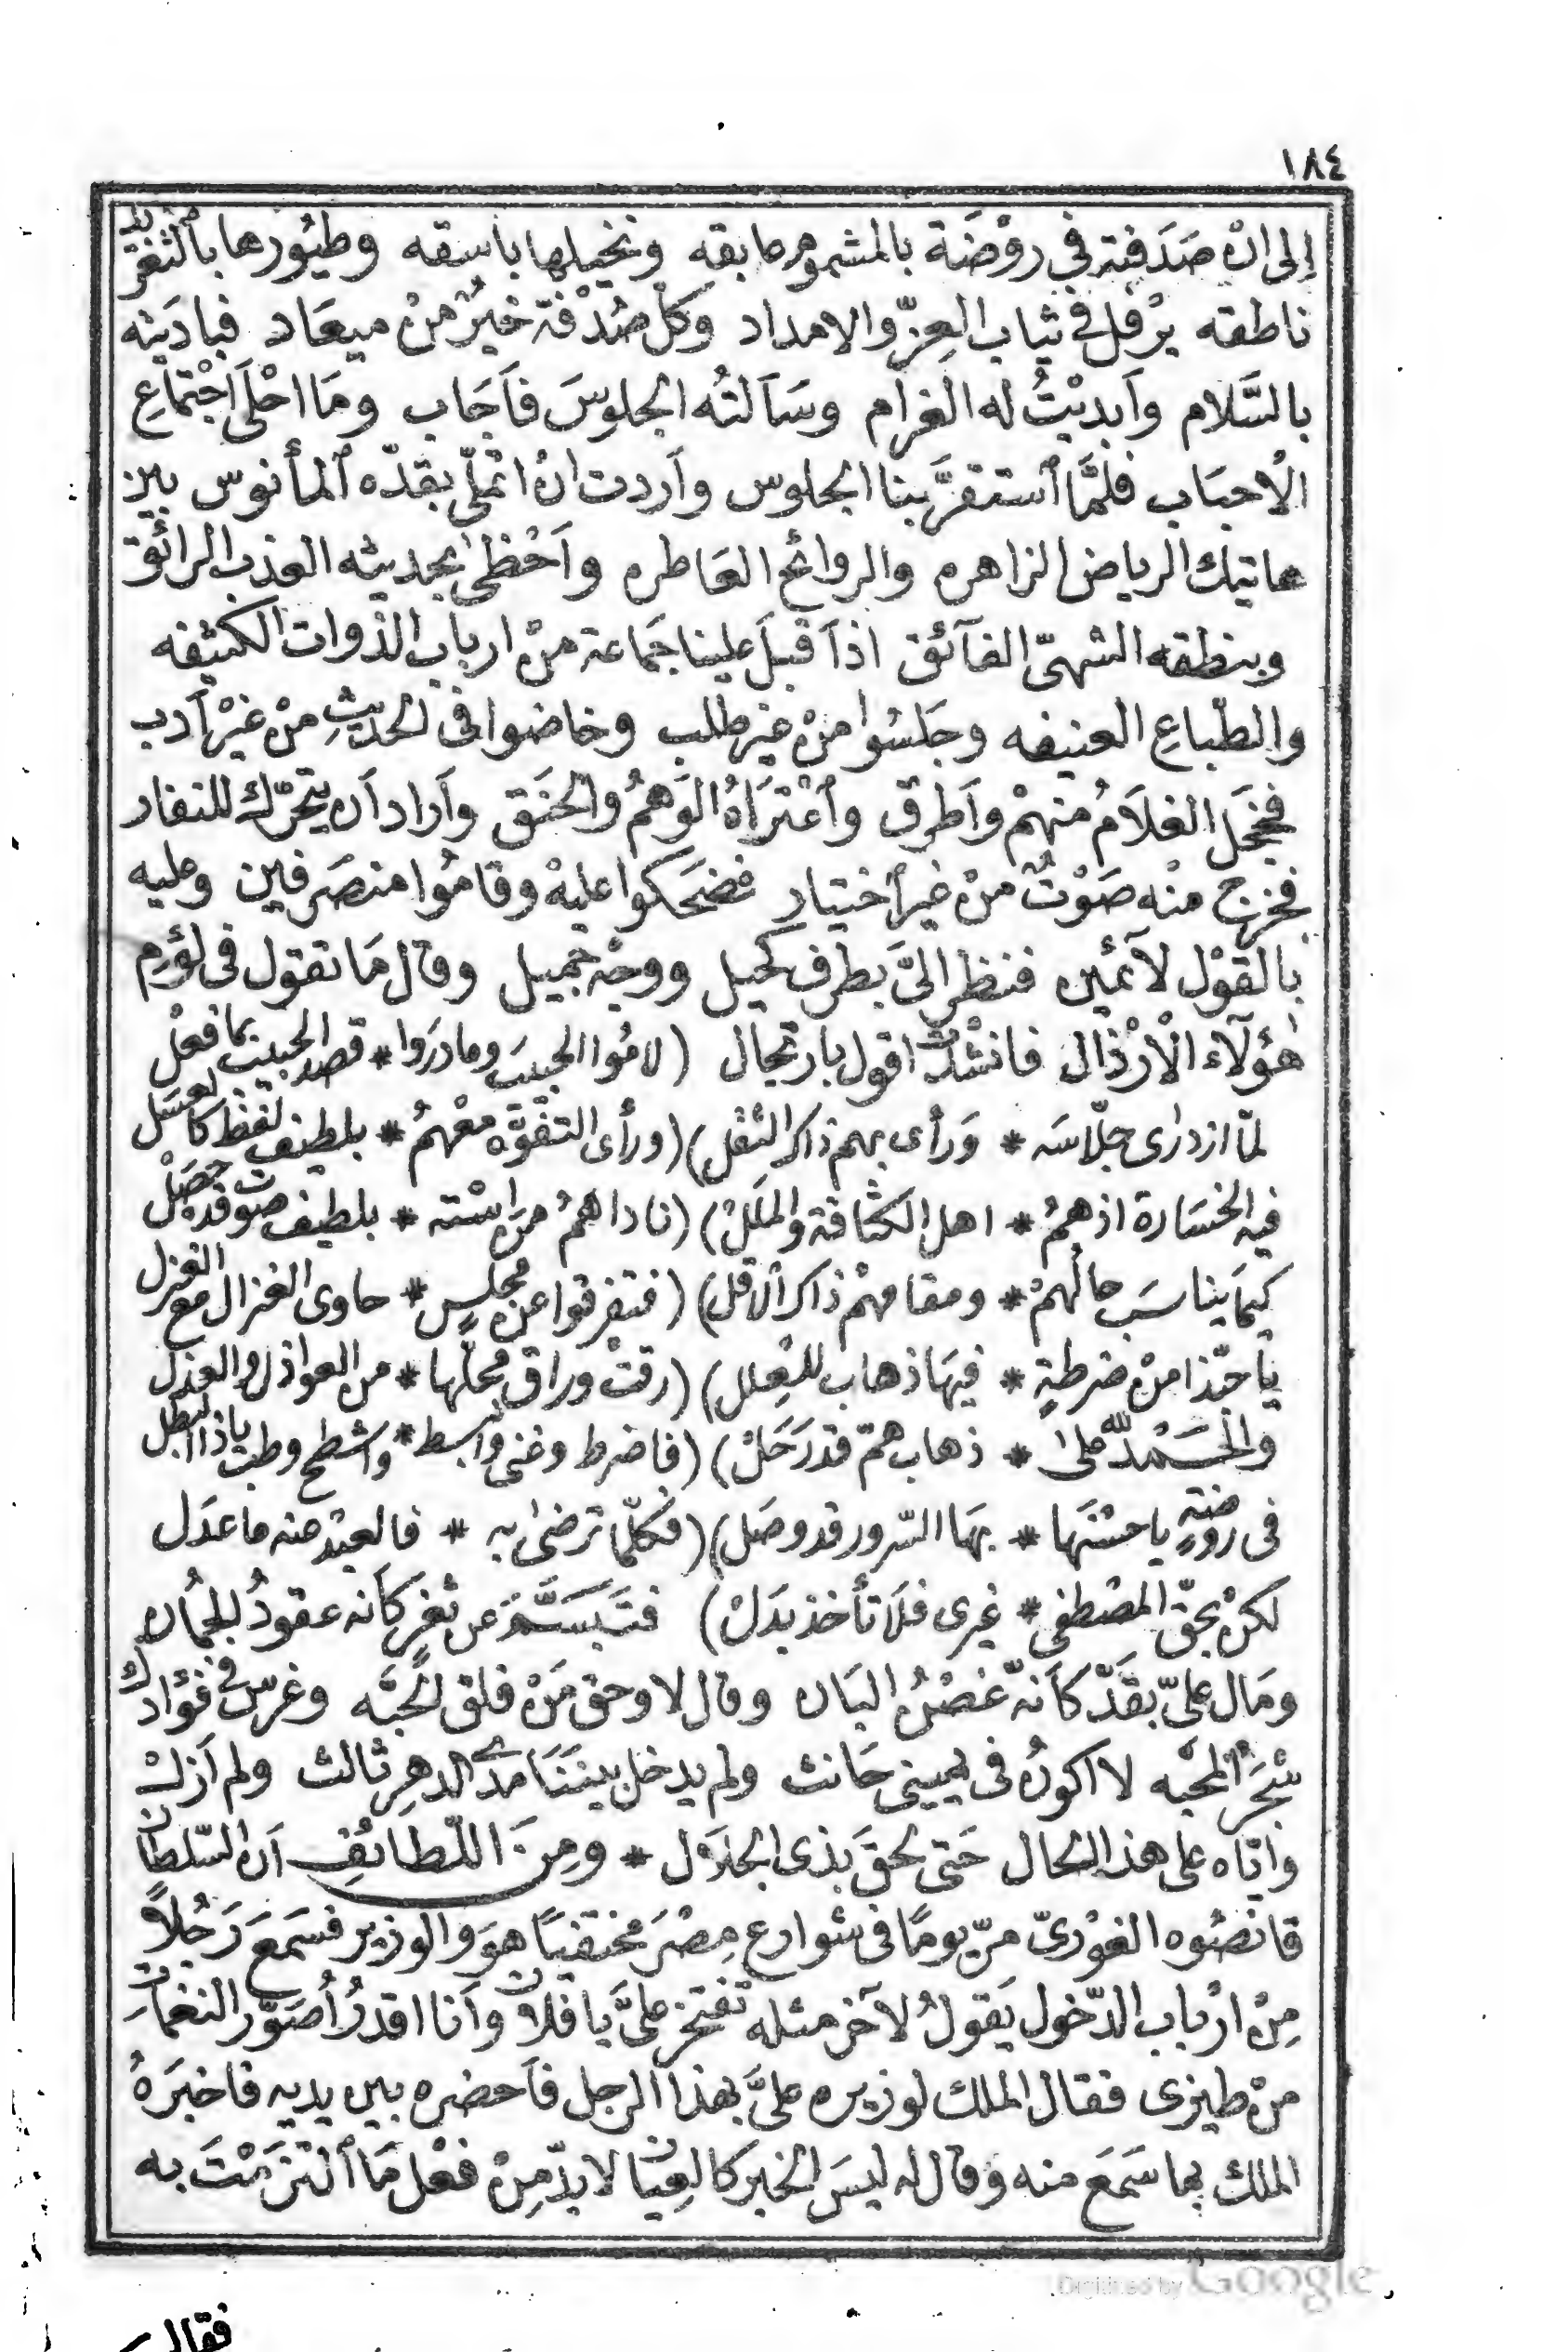 ١٨٤
إلى ان صَدَفته في روْضَة بالمشموم عابقه ونخيلها باسقه وطيُورها بالتغريد
ناطقه يرْفل في ثياب العِزّ والامداد وكلّ صُدْفة خيرٌ منْ ميعَاد فبادَيته
بالسَّلام وأبديْتُ له الغرام وسَألتُه الجلوسَ فأجَاب ومَا احْلَى اجْتماعِ
الأحبَاب فلمَّا ٱستقرَّ بنا الجلوس وأردت انْ اتملّى بقدّه ٱلمأنوس بين
هاتيك الرياض الزاهره والروائح العَاطره وأحْظى بحديثه العذب الرائق
وبنطقه الشهىّ الفآئق اذ أقبلَ علينا جَماعة منْ ارباب الذوات الكثيفه
والطباعِ العنيفه وجَلسُوا منْ غير طلب وخاضوا فى الحديثِ منْ غيْر أدب
فخجَل الغلَامُ منهمْ وأطرق وٱعْتَرَاهُ الوَهمُ والحنَق وأراد أن يتحرّك للنفار
فخرج منْه صَوْتٌ منْ غير ٱختيار فضحَكوا عليهْ وقامُوا منصَرفين وعليه
بالقوْل لآئمين فنظر الىَّ بطرف كحيل ووجْه جميل وقال مَا تقول فى لؤم
هٰؤلآء الْأرْذال فانشدْت اقول بارتجال (لامُوا الحبيبَ وما درَوا * قصد الحبيب بما فعلْ
لمّا ازدرى جلّاسَه * وَرأى بهم ذاكر الثقل) (ورأى التفوّه معْهمُ * بلطيف لفظ كالعسَل
فيه الخسَارة اذ همُ * اهل الكثافة والملَلْ) (ناداهمُ من ٱسْته * بلطيف صوت قد حصَلْ
كيمَا يناسَب حالهمْ * ومقامهمْ ذاك الاقل) (فتفرقوا عن مجلسٍ * حاوى الغزال مع الغزل
يا حبّذا منْ ضرطةٍ * فيهَا ذهاب للعِلل) (رقتْ وراق محلّها * من العواذل والعذل
والحَمْدُ للّٰه على * ذهاب همّ قد رَحَلْ) (فاضرط وغنى وٱبسط * واشطح وطب ياذا البطل
فى روضةٍ يا حسْنَها * بهَا السّرور قد وصَل) (فكلّما ترضىٰ به * فالعبْد عنه ما عدَل
لكنْ بحقّ المصْطفى * غيرى فلَا تأخذ بدَلْ) فتَبسَّمَ عن ثغرٍ كأنه عقودُ الجُمان
ومَال علىّ بقَدّ كأنّه غصْنُ البَان وقال لا وحق مَنْ فلق الحبّه وغرس فى فؤادك
شجَرَ المحَبّه لا اكونُ فى يمينى حَانث ولم يدخل بينَنَا مدى الدهرِ ثالث ولم أزلْ
وايّاه على هذا الحال حَتى لحقَ بذى الجلَال * ومِنَ اللّطائفِ أن السّلطان
قانصُوه الغوْرىّ مرّ يومًا فى شوارع مِصْرَ مختفيًا هوَ والوزير فسَمعَ رَجُلاً
مِنْ ارْباب الدّخول يَقولُ لآخر مثله تفتخر علىَّ يا فلان وأنا اقدرُ أصَوّر النغمات
منْ طيزى فقال الملك لوزيره علىَّ بهذا الرجل فأحضره بين يديه فاخبَرَهُ
الملك بما سَمعَ منه وقال له ليسَ الخبر كالعِيان لا بدّ مِنْ فعْل مَا ٱلتزمْتَ به
فقال
Digitized by Google